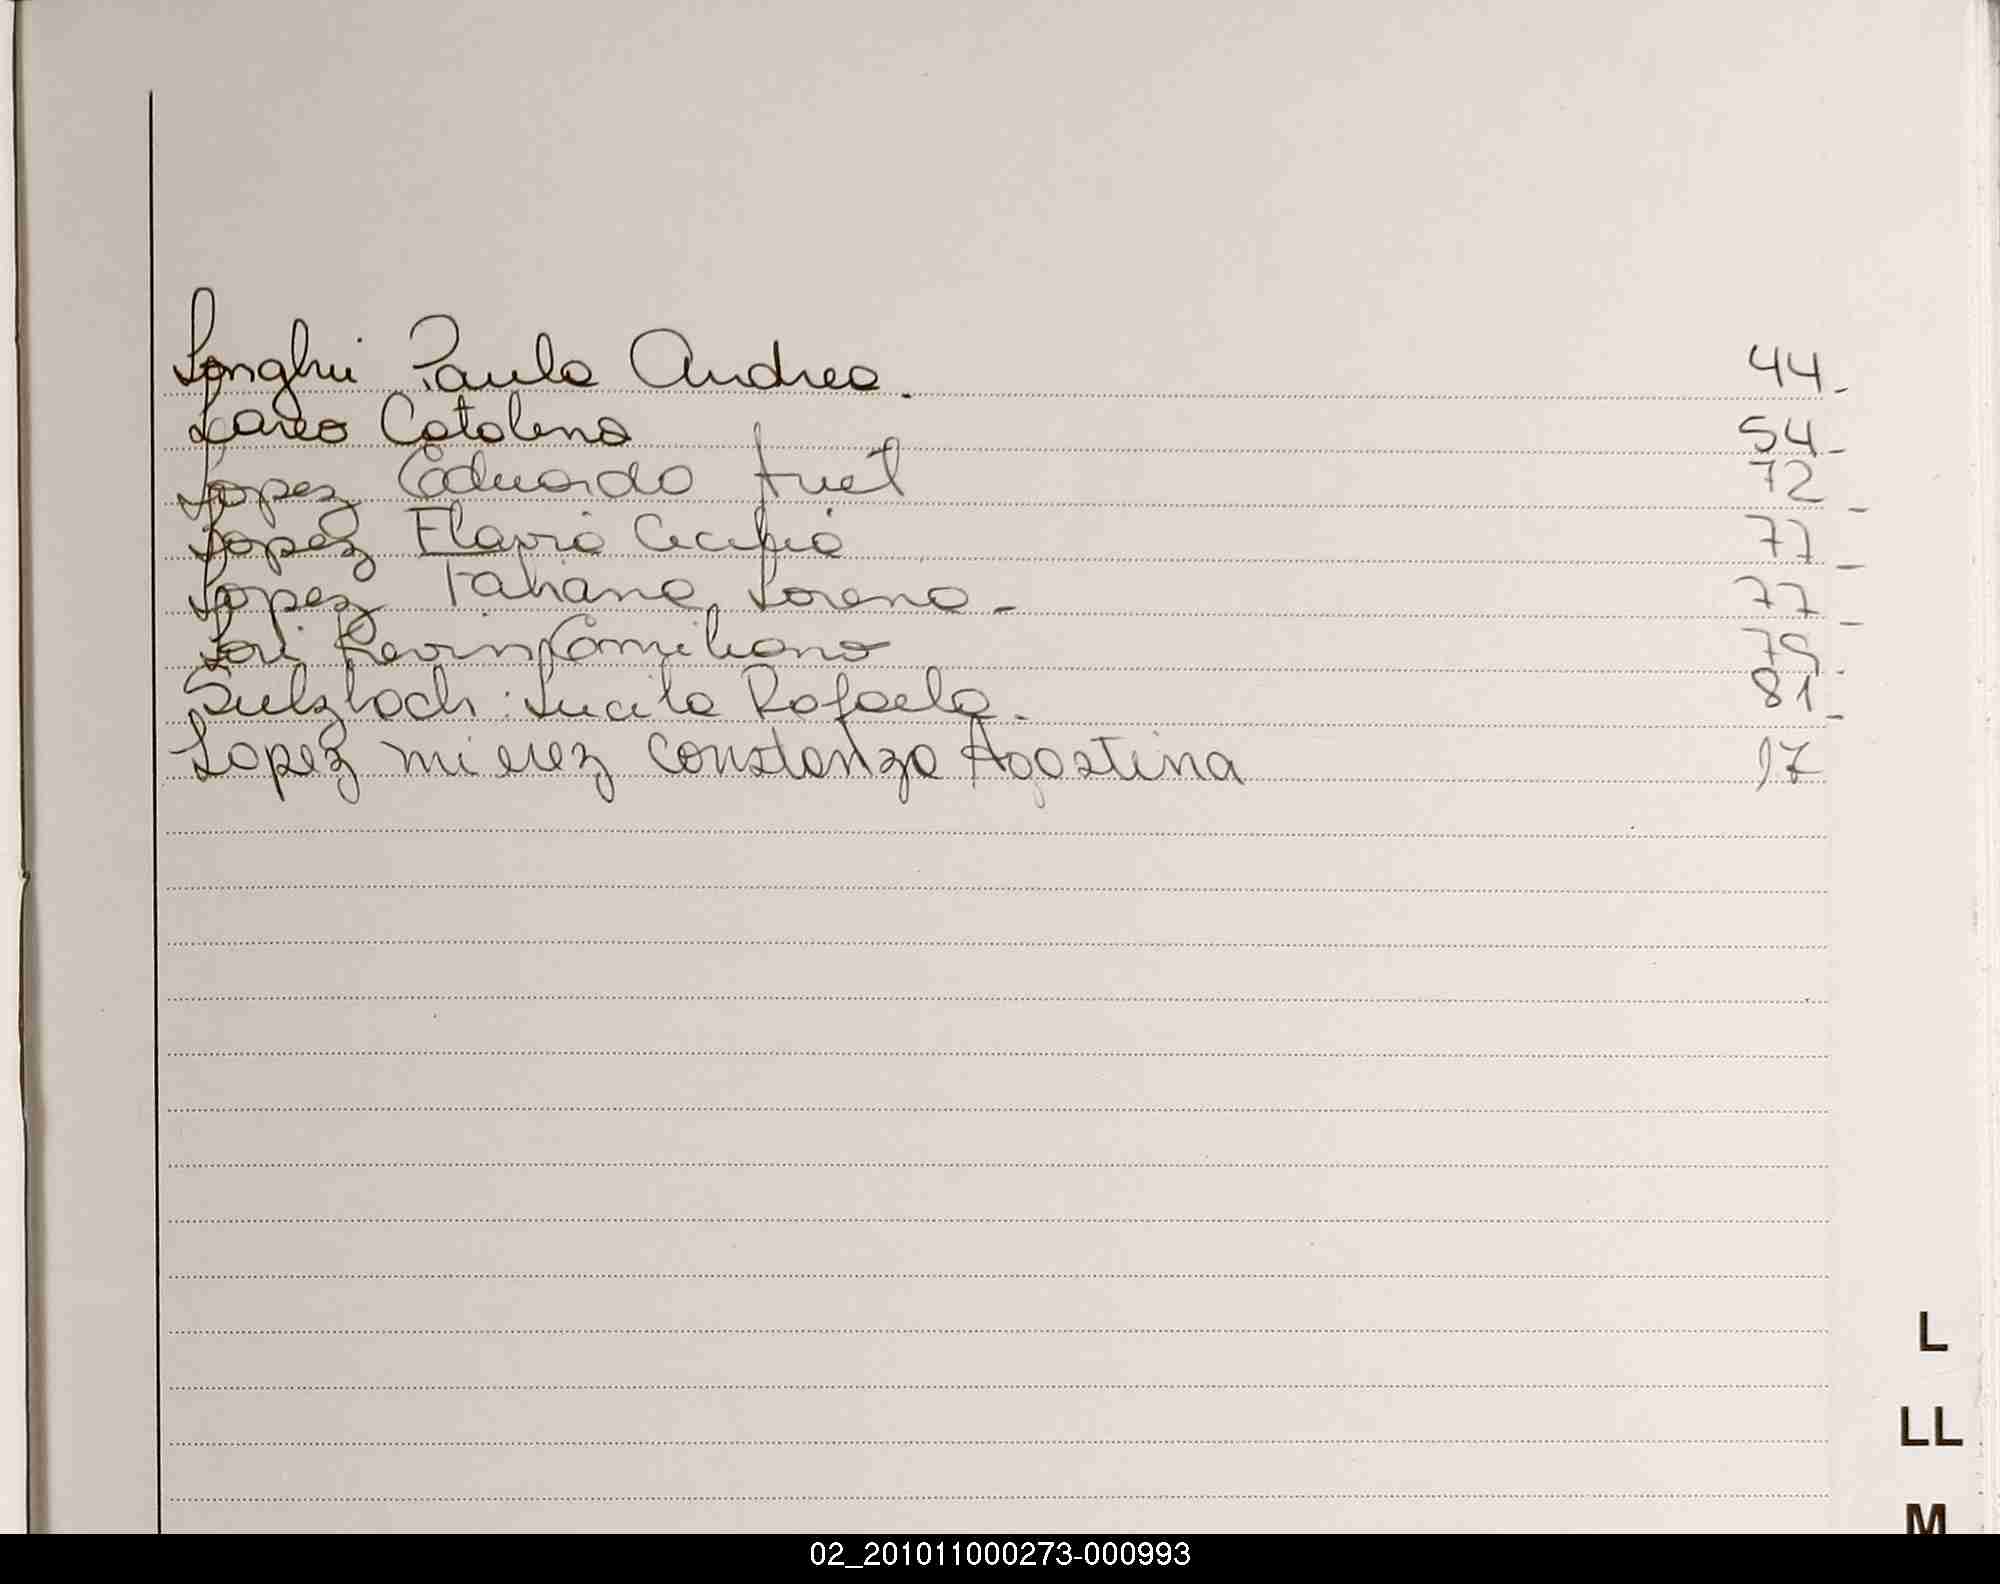 Longhi Paula Andrea. 44-
Lares Catalina 54-
Lopez Eduardo 72-
Lopez Flavia Cecilia 77-
Lopez Tatiana Lorena- 77-
Kevin Emiliano 79-
Sulzbach: Lucila Rafaela. 81-
Lopez mierez Constanza Agostina 97
L
LL
M
02_201011000273-000993